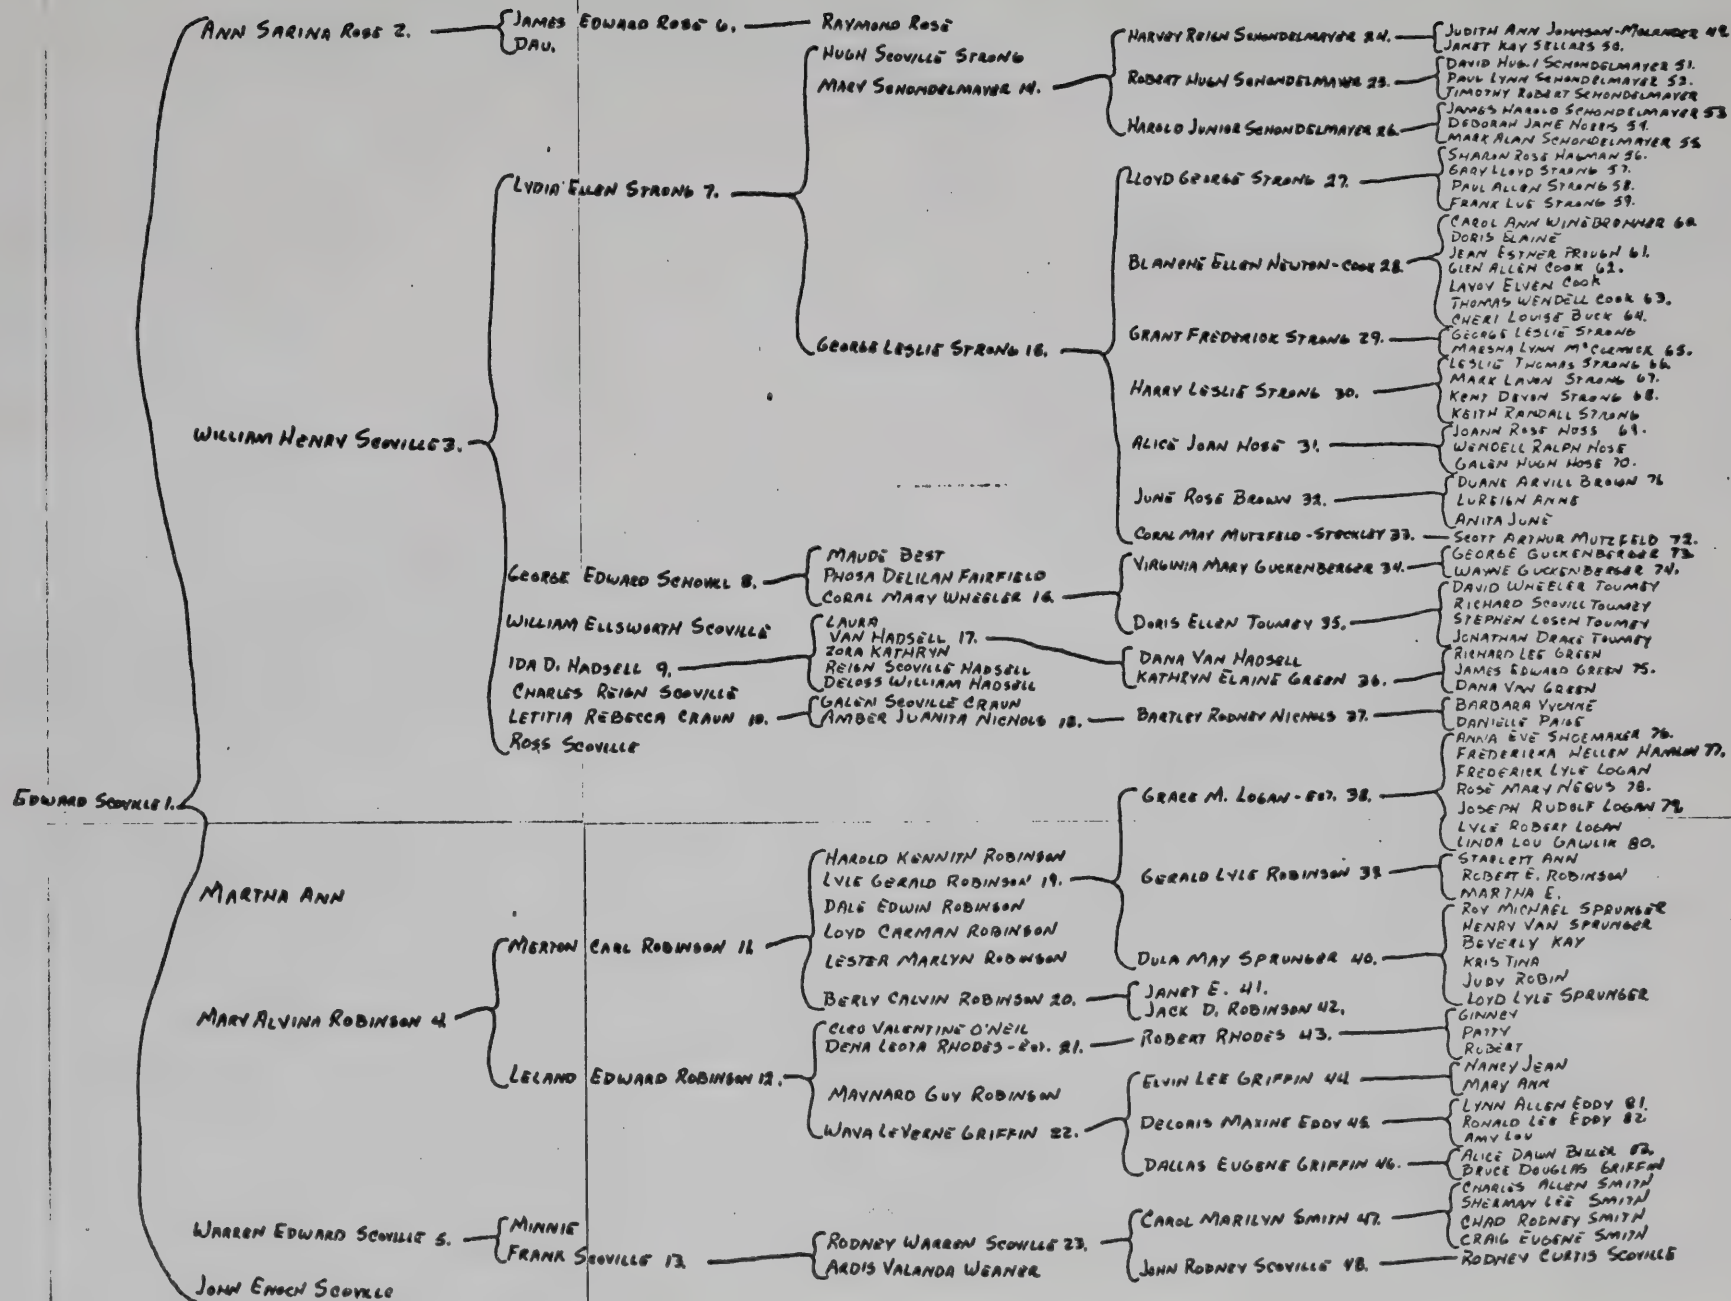 EDWARD SCOVILLE 1.
ANN SARINA ROSE 2.
WILLIAM HENRY SCOVILLE 3.
MARTHA ANN
MARY ALVINA ROBINSON 4.
WARREN EDWARD SCOVILLE 5.
JOHN ENOCH SCOVILLE
JAMES EDWARD ROSE 6.
DAU.
LYDIA ELLEN STRONG 7.
GEORGE EDWARD SCHOVILL 8.
WILLIAM ELLSWORTH SCOVILLE
IDA D. HADSELL 9.
CHARLES REIGN SCOVILLE
LETITIA REBECCA CRAUN 10.
ROSS SCOVILLE
MERTON CARL ROBINSON 11.
LELAND EDWARD ROBINSON 12.
MINNIE
FRANK SCOVILLE 13.
RAYMOND ROSE
HUGH SCOVILLE STRONG
MARY SCHONDELMAYER 14.
GEORGE LESLIE STRONG 15.
MAUDE BEST
PHOSA DELILAH FAIRFIELD
CORAL MARY WHEELER 16.
LAURA
VAN HADSELL 17.
ZORA KATHRYN
REIGN SCOVILLE HADSELL
DELOSS WILLIAM HADSELL
GALEN SCOVILLE CRAUN
AMBER JUANITA NICHOLS 18.
HAROLD KENNITH ROBINSON
LYLE GERALD ROBINSON 19.
DALE EDWIN ROBINSON
LOYD CARMAN ROBINSON
LESTER MARLYN ROBINSON
BERLY CALVIN ROBINSON 20.
CLEO VALENTINE O'NEIL
DENA LEOTA RHODES - 21.
MAYNARD GUY ROBINSON
WAVA LEVERNE GRIFFIN 22.
RODNEY WARREN SCOVILLE 23.
ARDIS VALANDA WEANER
HARVEY REIGN SCHONDELMAYER 24.
ROBERT HUGH SCHONDELMAYER 25.
HAROLD JUNIOR SCHONDELMAYER 26.
LLOYD GEORGE STRONG 27.
BLANCHE ELLEN NEWTON-COOK 28.
GRANT FREDERICK STRONG 29.
HARRY LESLIE STRONG 30.
ALICE JOAN HOSE 31.
JUNE ROSE BROWN 32.
CORAL MAY MUTZFELD-STOCKLEY 33.
VIRGINIA MARY GUCKENBERGER 34.
DORIS ELLEN TOUMEY 35.
DANA VAN HADSELL
KATHRYN ELAINE GREEN 36.
BARTLEY RODNEY NICHOLS 37.
GRACE M. LOGAN - 38.
GERALD LYLE ROBINSON 39.
DULA MAY SPRUNGER 40.
JANET E. 41.
JACK D. ROBINSON 42.
ROBERT RHODES 43.
ELVIN LEE GRIFFIN 44.
DELORIS MAXINE EDDY 45.
DALLAS EUGENE GRIFFIN 46.
CAROL MARILYN SMITH 47.
JOHN RODNEY SCOVILLE 48.
JUDITH ANN JOHNSON-MOLANDER 49.
JANET KAY SELLARS 50.
DAVID HUGH SCHONDELMAYER 51.
PAUL LYNN SCHONDELMAYER 52.
TIMOTHY ROBERT SCHONDELMAYER
JAMES HAROLD SCHONDELMAYER 53
DEBORAH JANE NORRIS 54.
MARK ALAN SCHONDELMAYER 55
SHARON ROSE HAGMAN 56.
GARY LLOYD STRONG 57.
PAUL ALLEN STRONG 58.
FRANK LUE STRONG 59.
CAROL ANN WINEBRENNER 60.
DORIS ELAINE
JEAN ESTHER PROUGH 61.
GLEN ALLEN COOK 62.
LAVOY ELVEN COOK
THOMAS WENDELL COOK 63.
CHERI LOUISE BUCK 64.
GEORGE LESLIE STRONG
MARSHA LYNN McCORMICK 65.
LESLIE THOMAS STRONG 66.
MARK LAVON STRONG 67.
KENT DEVON STRONG 68.
KEITH RANDALL STRONG
JOANN ROSE HOSS 69.
WENDELL RALPH HOSE
GALEN HUGH HOSE 70.
DUANE ARVILL BROWN 71.
LUREIGN ANNE
ANITA JUNE
SCOTT ARTHUR MUTZFELD 72.
GEORGE GUCKENBERGER 73.
WAYNE GUCKENBERGER 74.
DAVID WHEELER TOUMEY
RICHARD SCOVILL TOUMEY
STEPHEN LOSCH TOUMEY
JONATHAN DRAKE TOUMEY
RICHARD LEE GREEN
JAMES EDWARD GREEN 75.
DANA VAN GREEN
BARBARA YVONNE
DANIELLE PAIGE
ANNA EVE SHOEMAKER 76.
FREDERICKA HELLEN HAMLIN 77.
FREDERICK LYLE LOGAN
ROSE MARY NEGUS 78.
JOSEPH RUDOLF LOGAN 79.
LYLE ROBERT LOGAN
LINDA LOU GAWLIK 80.
STARLETT ANN
ROBERT E. ROBINSON
MARTHA E.
ROY MICHAEL SPRUNGER
HENRY VAN SPRUNGER
BEVERLY KAY
KRISTINA
JUDY ROBIN
LOYD LYLE SPRUNGER
GINNEY
PATTY
ROBERT
NANCY JEAN
MARY ANN
LYNN ALLEN EDDY 81.
RONALD LEE EDDY 82.
AMY LOU
ALICE DAWN 83.
BRUCE DOUGLAS GRIFFIN
CHARLES ALLEN SMITH
SHERMAN LEE SMITH
CHAD RODNEY SMITH
CRAIG EUGENE SMITH
RODNEY CURTIS SCOVILLE